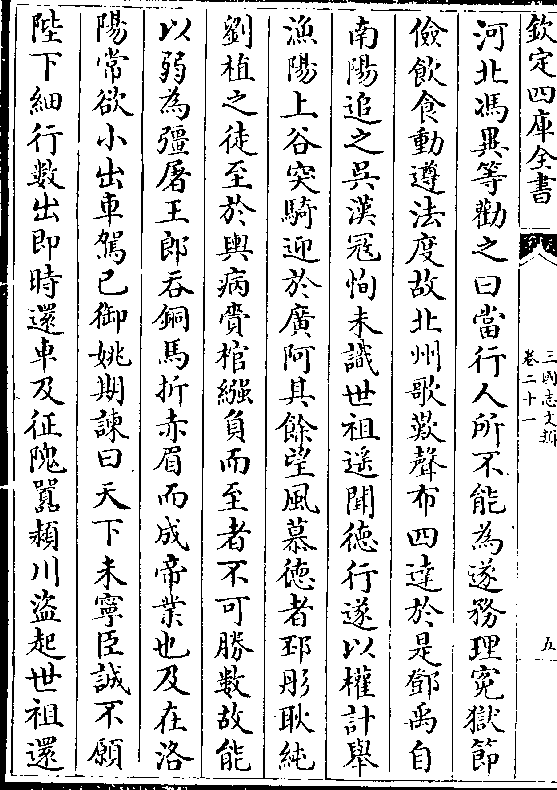 欽定四庫全書
三國志文類
卷二十一
五
河北馮異等勸之曰當行人所不能為遂務理寃獄節
儉飲食動遵法度故北州歌歎聲布四達於是鄧禹自
南陽追之吳漢冦恂未識世祖遙聞德行遂以權計舉
漁陽上谷突騎迎於廣阿其餘望風慕德者邳肜耿純
劉植之徒至於輿病賫棺繈負而至者不可勝數故能
以弱為彊屠王郎吞銅馬折赤眉而成帝業也及在洛
陽常欲小出車駕已御姚期諫曰天下未寧臣誠不願
陛下細行數出即時還車及征隗囂潁川盜起世祖還